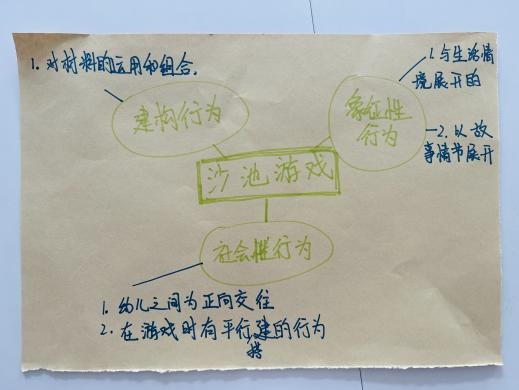 1. 对材料的运用和组合.
建构行为
象征性
行为
1. 与生活情
境展开的
2. 以故
事情节展开
沙池游戏
社会性行为
1. 幼儿之间为正向交往
2. 在游戏时有平行建的行为
搭